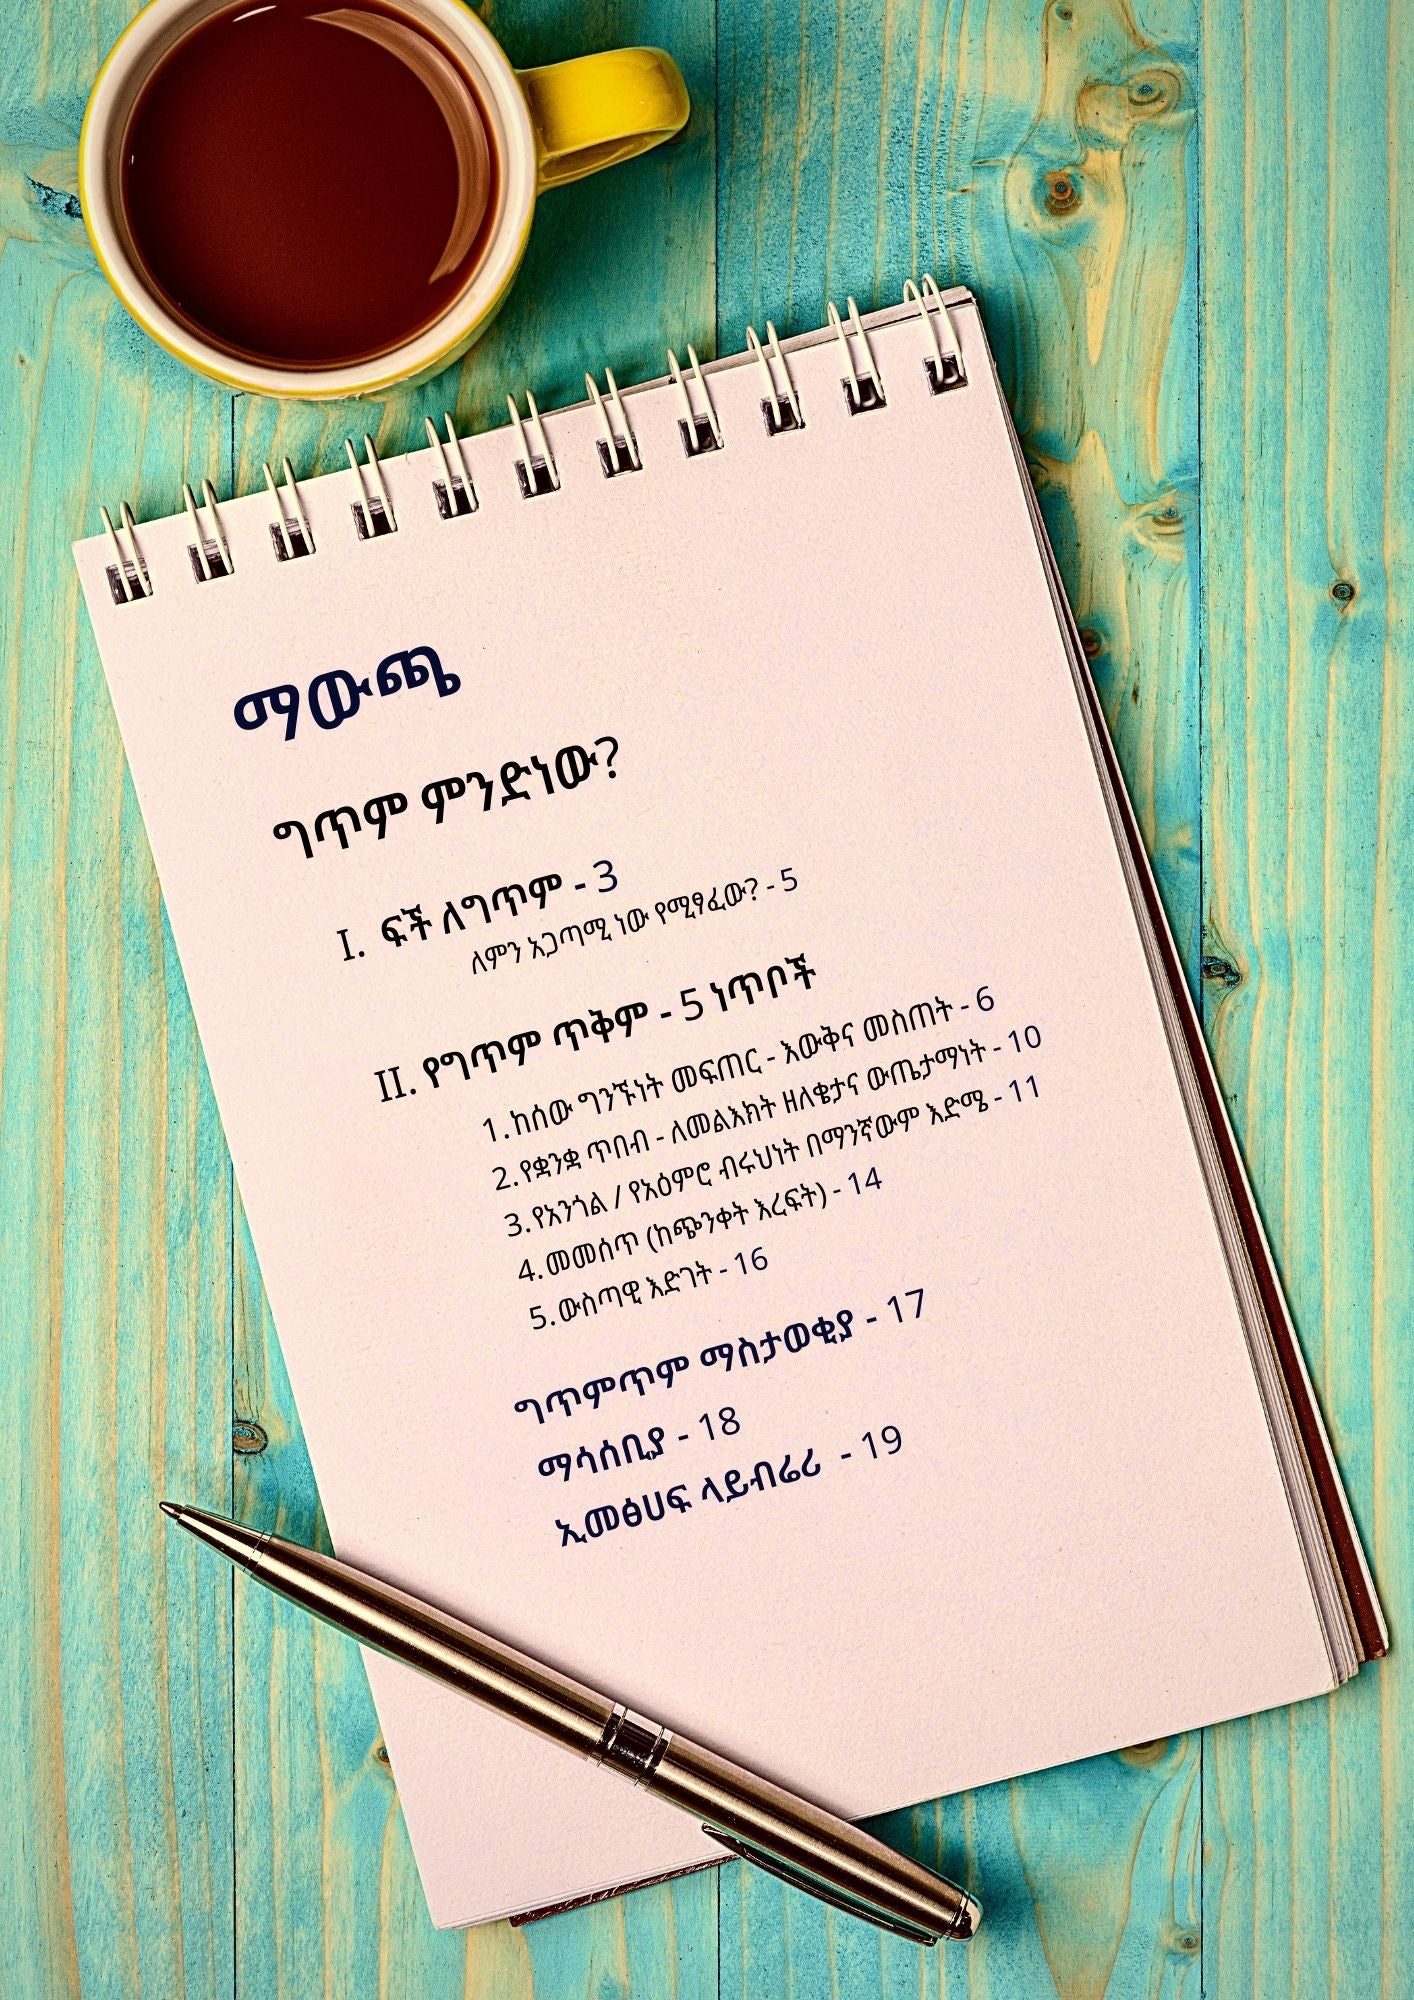 ማውጫ
ግጥም ምንድነው?
I. ፍች ለግጥም - 3
ለምን አጋጣሚ ነው የሚፃፈው? - 5
II. የግጥም ጥቅም - 5 ነጥቦች
1. ከሰው ግንኙነት መፍጠር - እውቅና መስጠት - 6
2. የቋንቋ ጥበብ - ለመልእክት ዘለቄታና ውጤታማነት - 10
3. የአንጎል / የአዕምሮ ብሩህነት በማንኛውም እድሜ - 11
4. መመሰጥ (ከጭንቀት እረፍት) - 14
5. ውስጣዊ እድገት - 16
ግጥምጥም ማስታወቂያ - 17
ማሳሰቢያ - 18
ኢመፅሀፍ ላይብሬሪ - 19